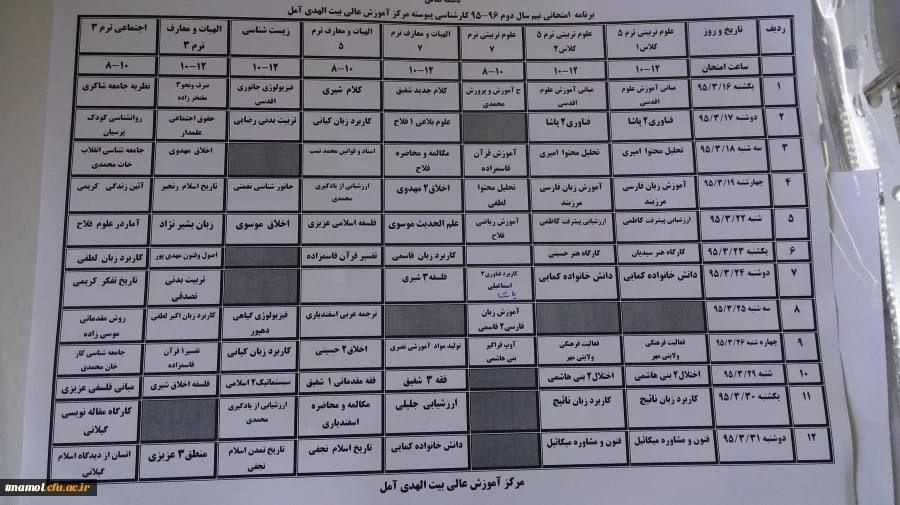 برنامه امتحانی نیم سال دوم ۹۶-۹۵ کارشناسی پیوسته مرکز آموزش عالی بیت الهدی آمل
ردیف | تاریخ و روز | علوم تربیتی ترم ۵ کلاس۱ | علوم تربیتی ترم ۵ کلاس۲ | علوم تربیتی ترم ۷ | الهیات و معارف ترم ۷ | الهیات و معارف ترم ۵ | زیست شناسی | الهیات و معارف ترم ۳ | اجتماعی ترم ۳
ساعت امتحان | ۱۰-۱۲ | ۱۰-۱۲ | ۸-۱۰ | ۱۰-۱۲ | ۸-۱۰ | ۱۰-۱۲ | ۱۰-۱۲ | ۸-۱۰
۱ | یکشنبه ۹۵/۳/۱۶ | مبانی آموزش علوم اقدسی | مبانی آموزش علوم اقدسی | ج آموزش و پرورش محمدی | کلام جدید شفیق | کلام شیری | فیزیولوژی جانوری اقدسی | صرف ونحو۳ مفتخر زاده | نظریه جامعه شاکری
۲ | دوشنبه ۹۵/۳/۱۷ | فناوری۲ پاشا | فناوری۲ پاشا | علوم بلاغی ۱ فلاح | کاربرد زبان کیانی | تربیت بدنی رضایی | حقوق اجتماعی علمدار | روانشناسی کودک پرسیان
۳ | سه شنبه ۹۵/۳/۱۸ | تحلیل محتوا امیری | تحلیل محتوا امیری | آموزش قرآن قاسمزاده | مکالمه و محاضره فلاح | اسناد و قوانین محمد نسب | اخلاق مهدوی | جامعه شناسی انقلاب خات محمدی
۴ | چهارشنبه ۹۵/۳/۱۹ | آموزش زبان فارسی مرزبند | آموزش زبان فارسی مرزبند | تحلیل محتوا لطفی | اخلاق۲ مهدوی | ارزشیابی از یادگیری محمدی | جانور شناسی نعمتی | تاریخ اسلام رنجبر | آئین زندگی کریمی
۵ | شنبه ۹۵/۳/۲۲ | ارزشیابی پیشرفت کاظمی | ارزشیابی پیشرفت کاظمی | آموزش ریاضی فلاح | علم الحدیث موسوی | فلسفه اسلامی عزیزی | اخلاق موسوی | زبان بشیر نژاد | آماردر علوم فلاح
۶ | یکشنبه ۹۵/۳/۲۳ | کارگاه هنر سیدیان | کارگاه هنر حسینی | کاربرد زبان قاسمی | تفسیر قرآن قاسمزاده | اصول وفنون مهدی پور | کاربرد زبان لطفی
۷ | دوشنبه ۹۵/۳/۲۴ | دانش خانواده کمایی | دانش خانواده کمایی | کاربرد فناوری۲ اسماعیلی | فلسفه۳ شیری | تربیت بدنی تصدقی | تاریخ تفکر کریمی
۸ | سه شنبه ۹۵/۳/۲۵ | آموزش زبان فارسی۲ قاسمی | ترجمه عربی اسفندیاری | فیزیولوژی گیاهی دهپور | کاربرد زبان اکبر لطفی | روش مقدماتی موسی زاده
۹ | چهارشنبه ۹۵/۳/۲۶ | فعالیت فرهنگی ولایتی مهر | فعالیت فرهنگی ولایتی مهر | آوب فراگیر بنی هاشمی | تولید مواد آموزشی نصری | اخلاق۲ حسینی | کاربرد زبان کیانی | تفسیر۱ قرآن قاسمزاده | جامعه شناسی کار خان محمدی
۱۰ | شنبه ۹۵/۳/۲۹ | اختلال۲ بنی هاشمی | اختلال۲ بنی هاشمی | فقه ۳ شفیق | فقه مقدماتی ۱ شفیق | سیستماتیک۲ اسلامی | فلسفه اخلاق شیری | مبانی فلسفی عزیزی
۱۱ | یکشنبه ۹۵/۳/۳۰ | کاربرد زبان نائیج | کاربرد زبان نائیج | ارزشیابی جلیلی | مکالمه و محاضره اسفندیاری | ارزشیابی از یادگیری محمدی | کارگاه مقاله نویسی گیلانی
۱۲ | دوشنبه ۹۵/۳/۳۱ | فنون و مشاوره میکائیل | فنون و مشاوره میکائیل | دانش خانواده کمایی | تاریخ اسلام نجفی | تاریخ تمدن اسلام نجفی | منطق۳ عزیزی | انسان از دیدگاه اسلام گیلانی
مرکز آموزش عالی بیت الهدی آمل
tmamol.cfu.ac.ir